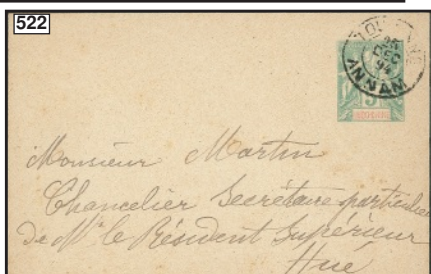 522
25
DEC
94
ANNAM
5
Monsieur Martin
Chancelier Secrétaire particulier
de Mr le Résident Supérieur
Hué